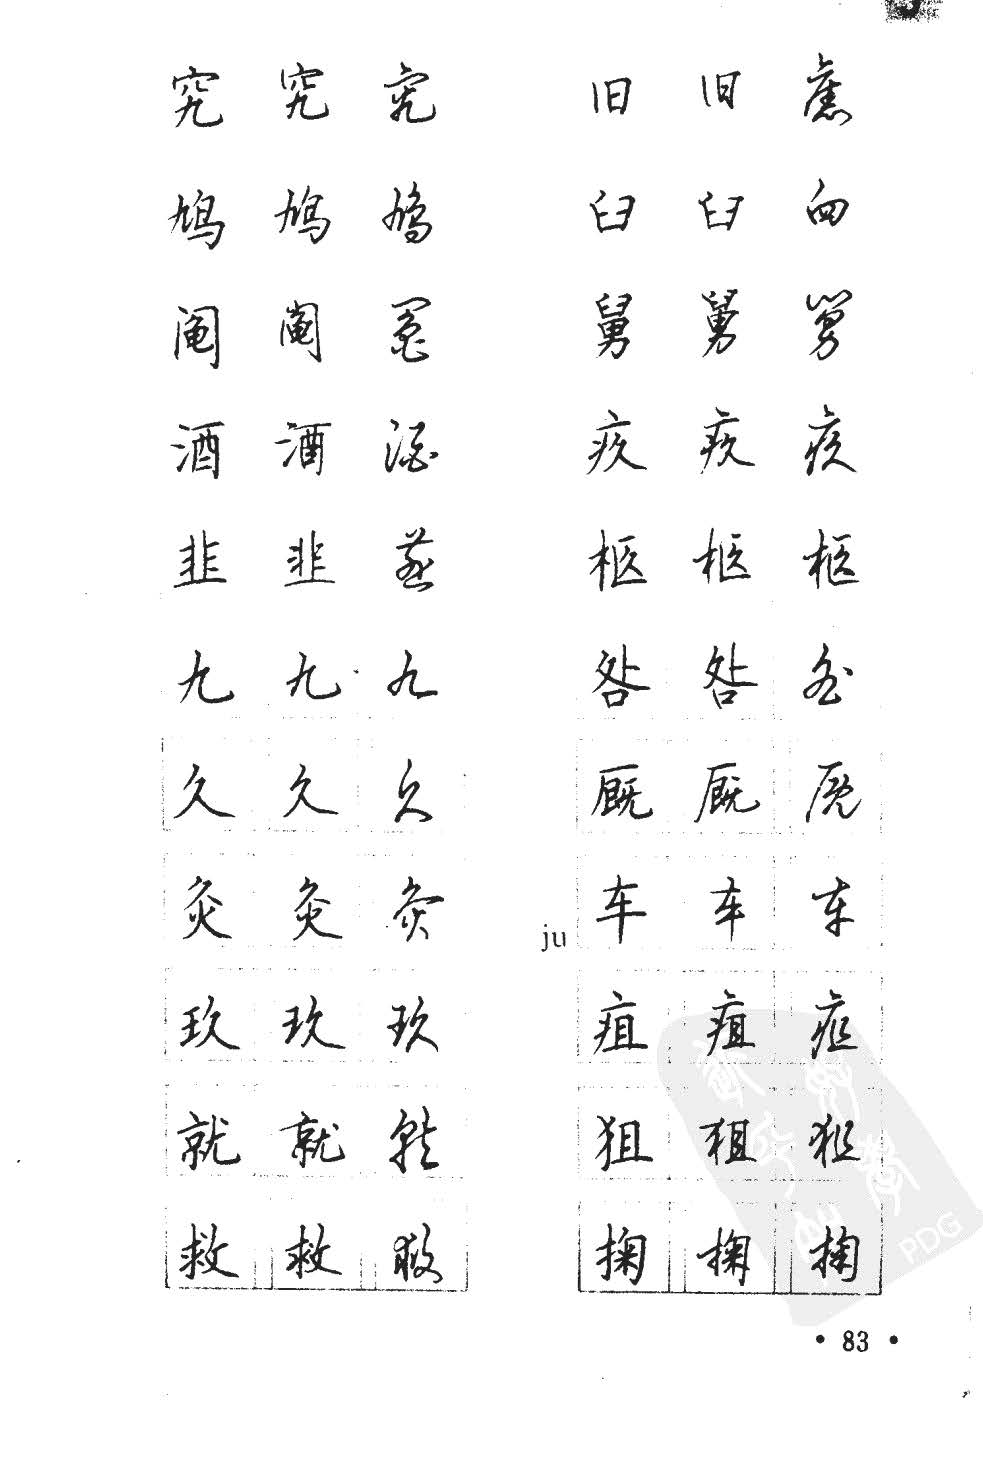 究 究 究
鸠 鸠 鸠
阄 阄 阄
酒 酒 酒
韭 韭 韭
九 九 九
久 久 久
灸 灸 灸
玖 玖 玖
就 就 就
救 救 救
旧 旧 舊
臼 臼 臼
舅 舅 舅
疚 疚 疚
柩 柩 柩
咎 咎 咎
厩 厩 厩
ju 车 车 车
疽 疽 疽
狙 狙 狙
掬 掬 掬
PDG
• 83 •